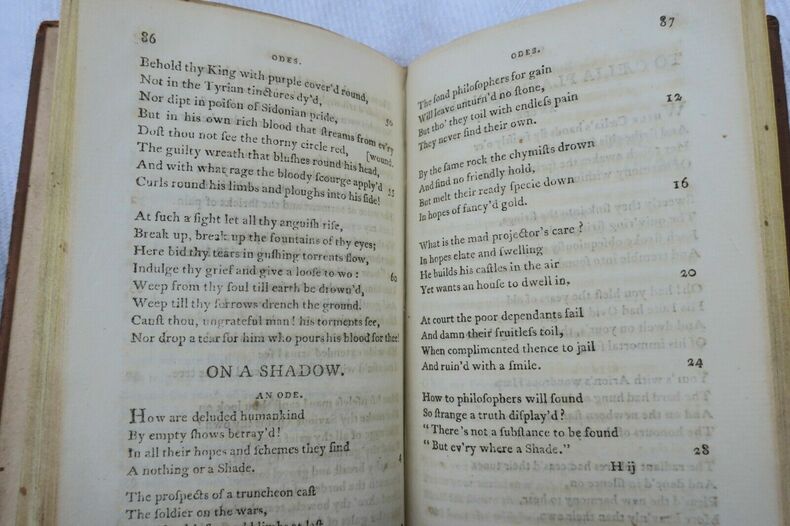 86
ODES.
Behold thy King with purple cover'd round,
Not in the Tyrian tinctures dy'd,
Nor dipt in poiſon of Sidonian pride,
But in his own rich blood that ſtreams from ev'ry 50
Doſt thou not ſee the thorny circle red, [wound.
The guilty wreath that bluſhes round his head,
And with what rage the bloody ſcourge apply'd 55
Curls round his limbs and ploughs into his ſide!
At ſuch a ſight let all thy anguiſh riſe,
Break up, break up the fountains of thy eyes;
Here bid thy tears in guſhing torrents flow,
Indulge thy grief and give a looſe to wo: 60
Weep from thy ſoul till earth be drown'd,
Weep till thy ſorrows drench the ground.
Canſt thou, ungrateful man! his torments ſee,
Nor drop a tear for him who pours his blood for thee!
ON A SHADOW.
AN ODE.
How are deluded humankind
By empty ſhows betray'd!
In all their hopes and ſchemes they find
A nothing or a Shade. 4
The proſpects of a truncheon caſt
The ſoldier on the wars,
87
ODES.
The fond philoſophers for gain
Will leave unturn'd no ſtone,
But tho' they toil with endleſs pain 12
They never find their own.
By the ſame rock the chymiſts drown
And find no friendly hold,
But melt their ready ſpecie down 16
In hopes of fancy'd gold.
What is the mad projector's care?
In hopes elate and ſwelling
He builds his caſtles in the air
Yet wants an houſe to dwell in. 20
At court the poor dependants fail
And damn their fruitleſs toil,
When complimented thence to jail
And ruin'd with a ſmile. 24
How to philoſophers will ſound
So ſtrange a truth diſplay'd?
"There's not a ſubſtance to be found
"But ev'ry where a Shade." 28
H ij